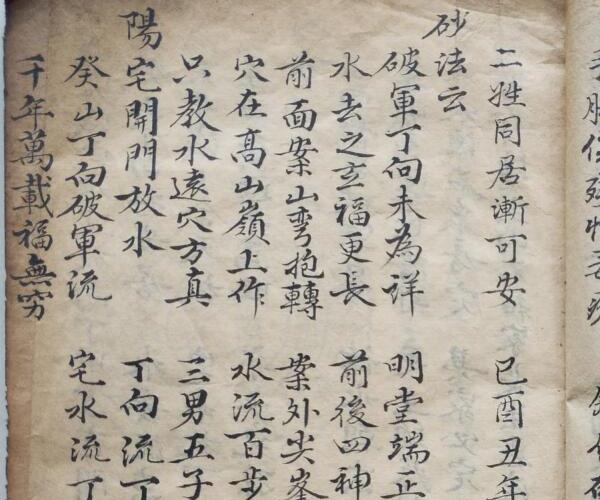 二姓同居漸可安　巳酉丑年
砂法云
破軍丁向未為詳　明堂端正
水去之玄福更長　前後四神
前面案山彎抱轉　案外尖峯
穴在高山嶺上作　水流百步
只教水遶穴方真　三男五子
陽宅開門放水　丁向流丁
癸山丁向破軍流　宅水流丁
千年萬載福無穷